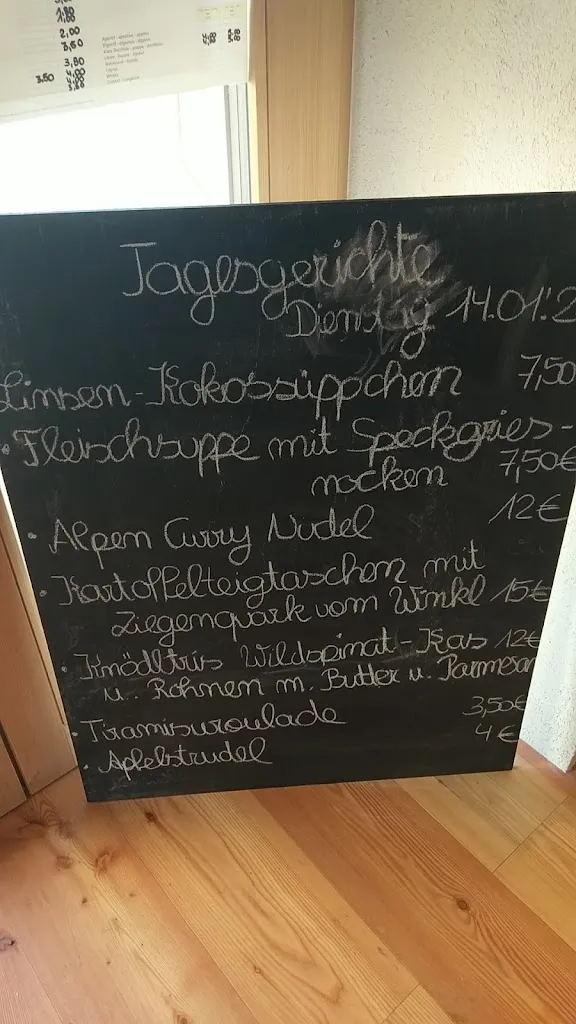 1,80
2,00
3,60
3,50
3,50
Tagesgerichte
Dienstag 14.01.'2
Linsen-Kokossüppchen 7,50
• Fleischsuppe mit Speckgries-
nocken 7,50€
• Alpen Curry Nudel 12€
• Kartoffelteigtaschen mit
Ziegenquark vom Winkl 15€
• Knödltris Wildspinat-Kas 12€
u. Rohnen m. Butter u. Parmesan
• Tiramisuroulade 3,50€
• Apfelstrudel 4€